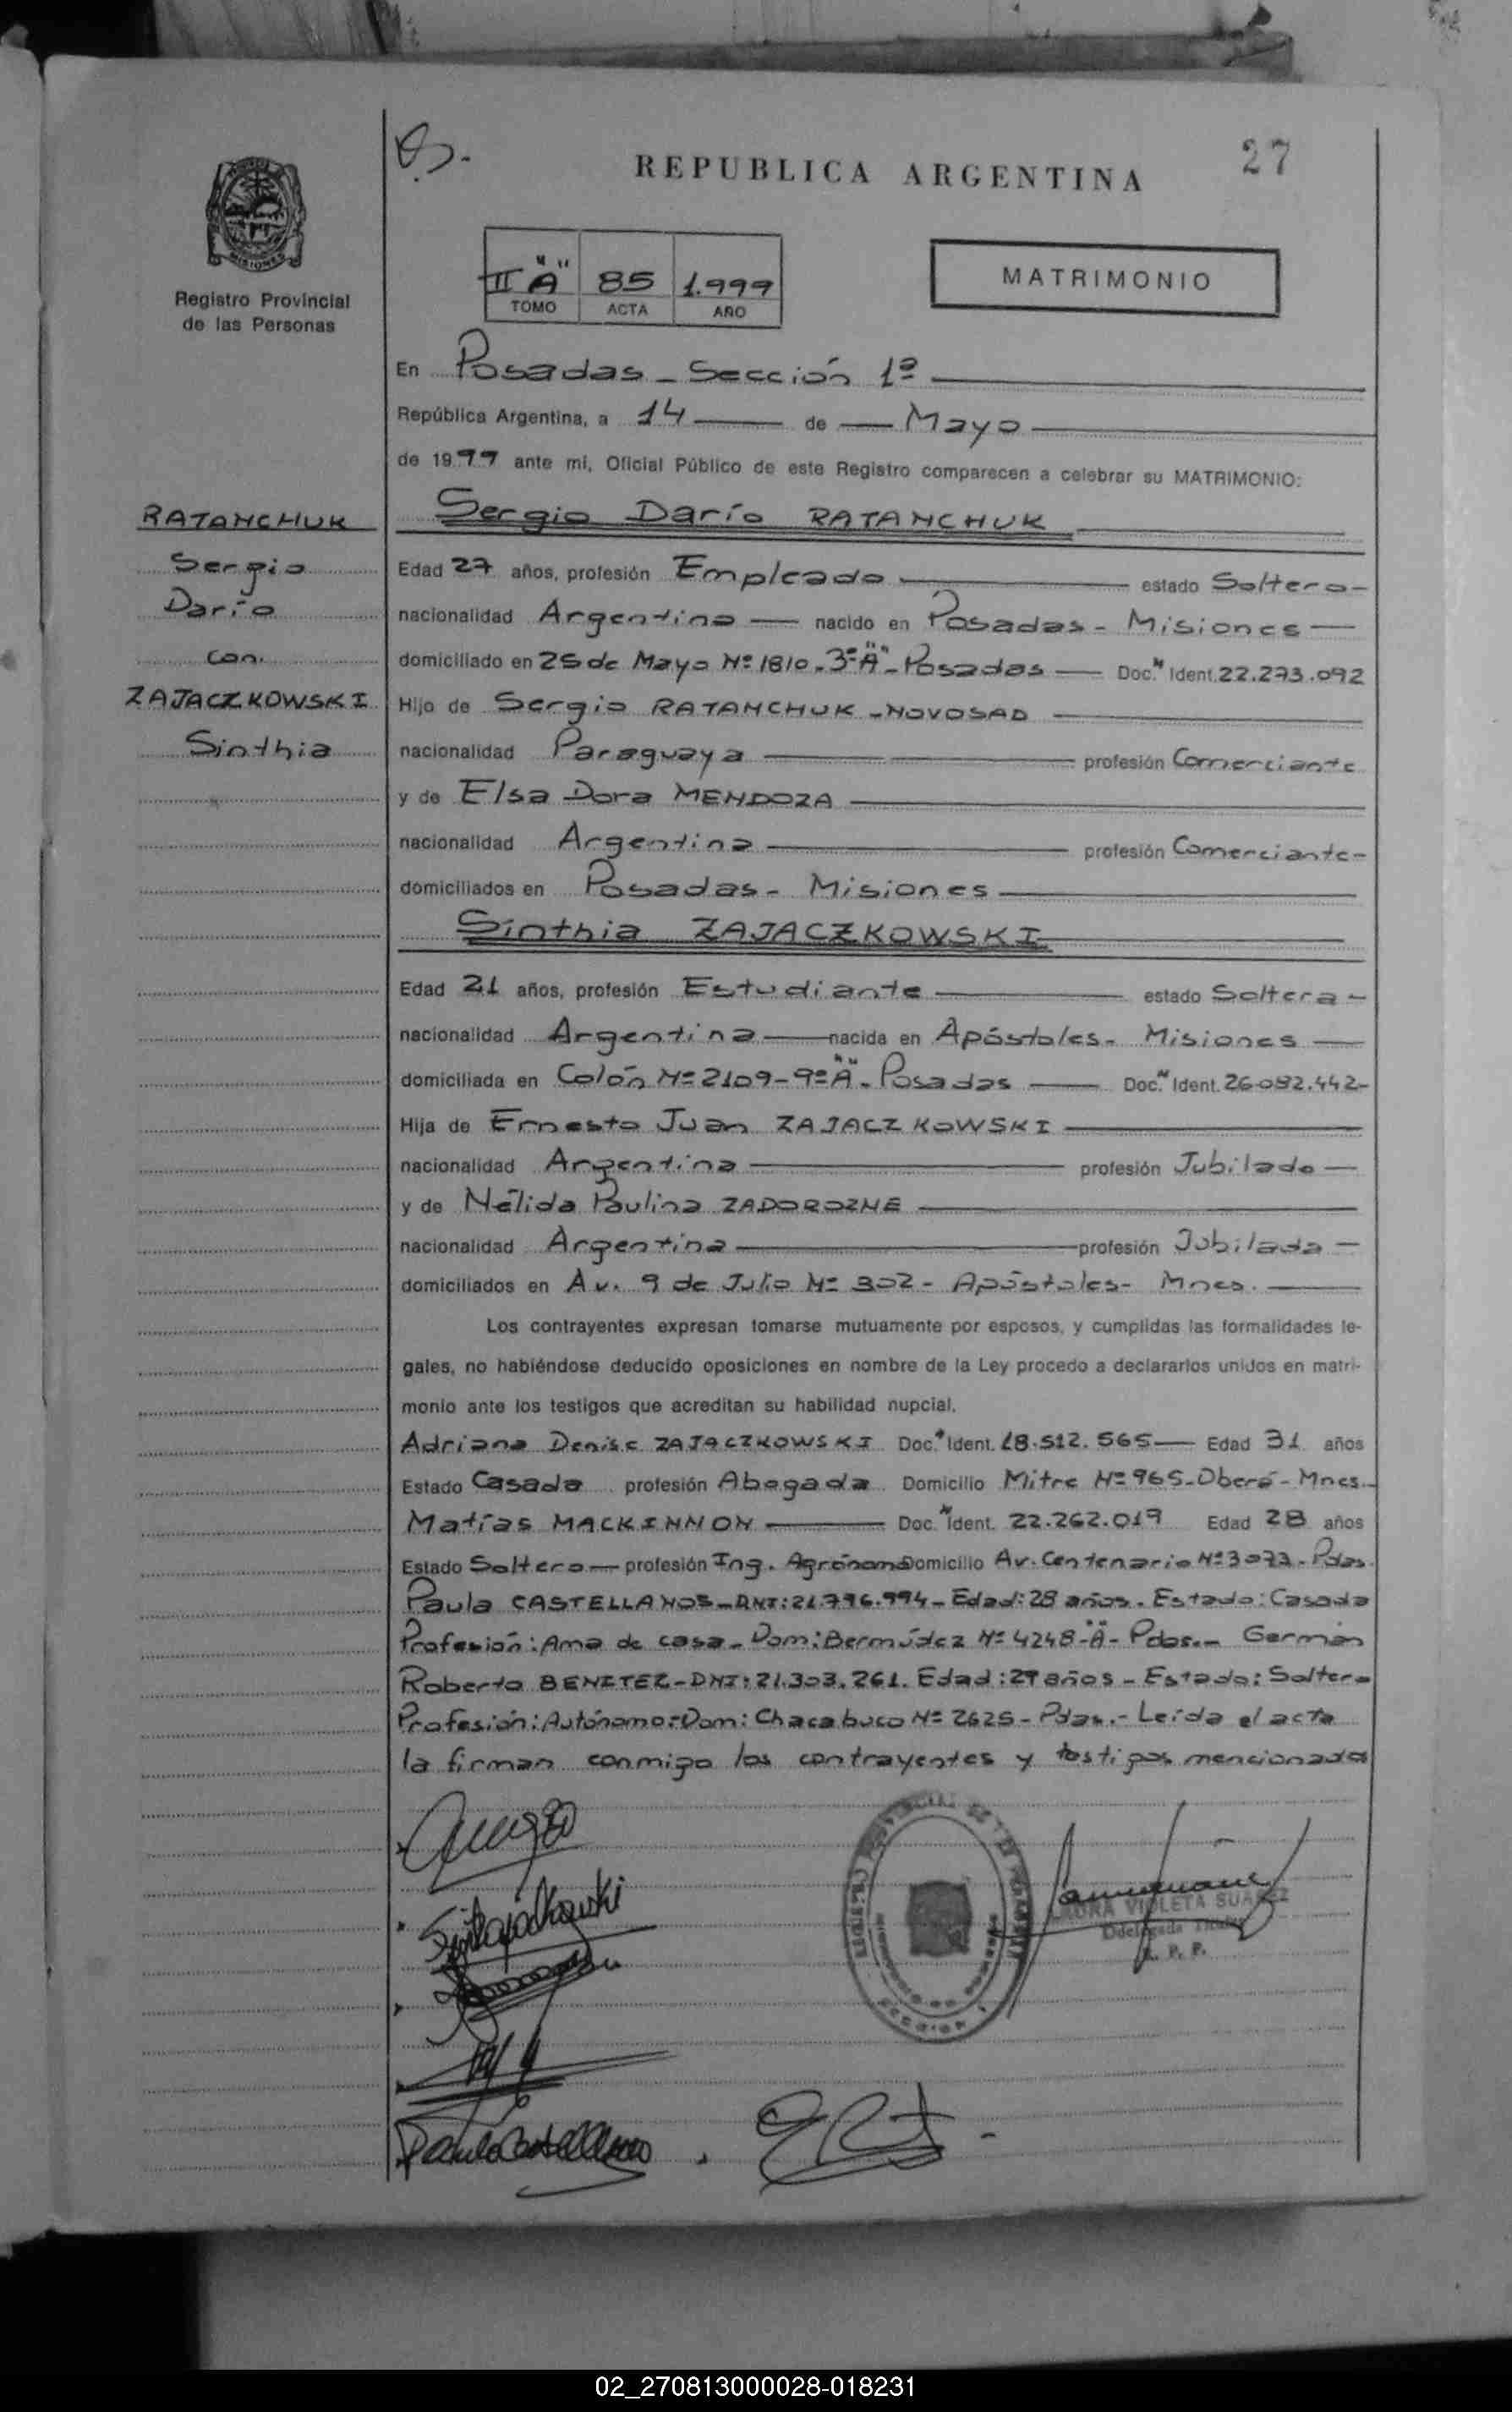 27
REPUBLICA ARGENTINA
MISIONES
Registro Provincial
de las Personas
II "A" 85 1.999
TOMO ACTA AÑO
MATRIMONIO
En Posadas - Sección 1ª
República Argentina, a 14 de Mayo
de 1999 ante mi, Oficial Público de este Registro comparecen a celebrar su MATRIMONIO:
RATANCHUK
Sergio
Darío
con
ZAJACZKOWSKI
Sinthia
Sergio Darío RATANCHUK
Edad 27 años, profesión Empleado estado Soltero-
nacionalidad Argentina nacido en Posadas - Misiones
domiciliado en 25 de Mayo Nº 1810 - 3º "A" - Posadas Doc. Ident. 22.273.092
Hijo de Sergio RATANCHUK - NOVOSAD
nacionalidad Paraguaya profesión Comerciante
y de Elsa Dora MENDOZA
nacionalidad Argentina profesión Comerciante-
domiciliados en Posadas - Misiones
Sinthia ZAJACZKOWSKI
Edad 21 años, profesión Estudiante estado Soltera-
nacionalidad Argentina nacida en Apóstoles - Misiones
domiciliada en Colón Nº 2109 - 9º "A" - Posadas Doc. Ident. 26.092.442-
Hija de Ernesto Juan ZAJACZKOWSKI
nacionalidad Argentina profesión Jubilado
y de Nélida Paulina ZADOROZNE
nacionalidad Argentina profesión Jubilada
domiciliados en Av. 9 de Julio Nº 302 - Apóstoles - Mnes.
Los contrayentes expresan tomarse mutuamente por esposos, y cumplidas las formalidades le-
gales, no habiéndose deducido oposiciones en nombre de la Ley procedo a declararlos unidos en matri-
monio ante los testigos que acreditan su habilidad nupcial.
Adriana Denise ZAJACZKOWSKI Doc. Ident. 18.512.565 Edad 31 años
Estado Casada profesión Abogada Domicilio Mitre Nº 965 - Oberá - Mnes.
Matías MACKINNON Doc. Ident. 22.262.019 Edad 28 años
Estado Soltero profesión Ing. Agrónomo Domicilio Av. Centenario Nº 3073 - Pdas.
Paula CASTELLANOS - DNI: 21.796.994 - Edad: 28 años. Estado: Casada
Profesión: Ama de casa - Dom: Bermúdez Nº 4248 - "A" - Pdas. - Germán
Roberto BENITEZ - DNI: 21.303.261. Edad: 29 años - Estado: Soltero
Profesión: Autónomo: Dom: Chacabuco Nº 2625 - Pdas. - Leída el acta
la firman conmigo los contrayentes y testigos mencionados
Paula Castellanos
VIOLETA SUAREZ
02_270813000028-018231